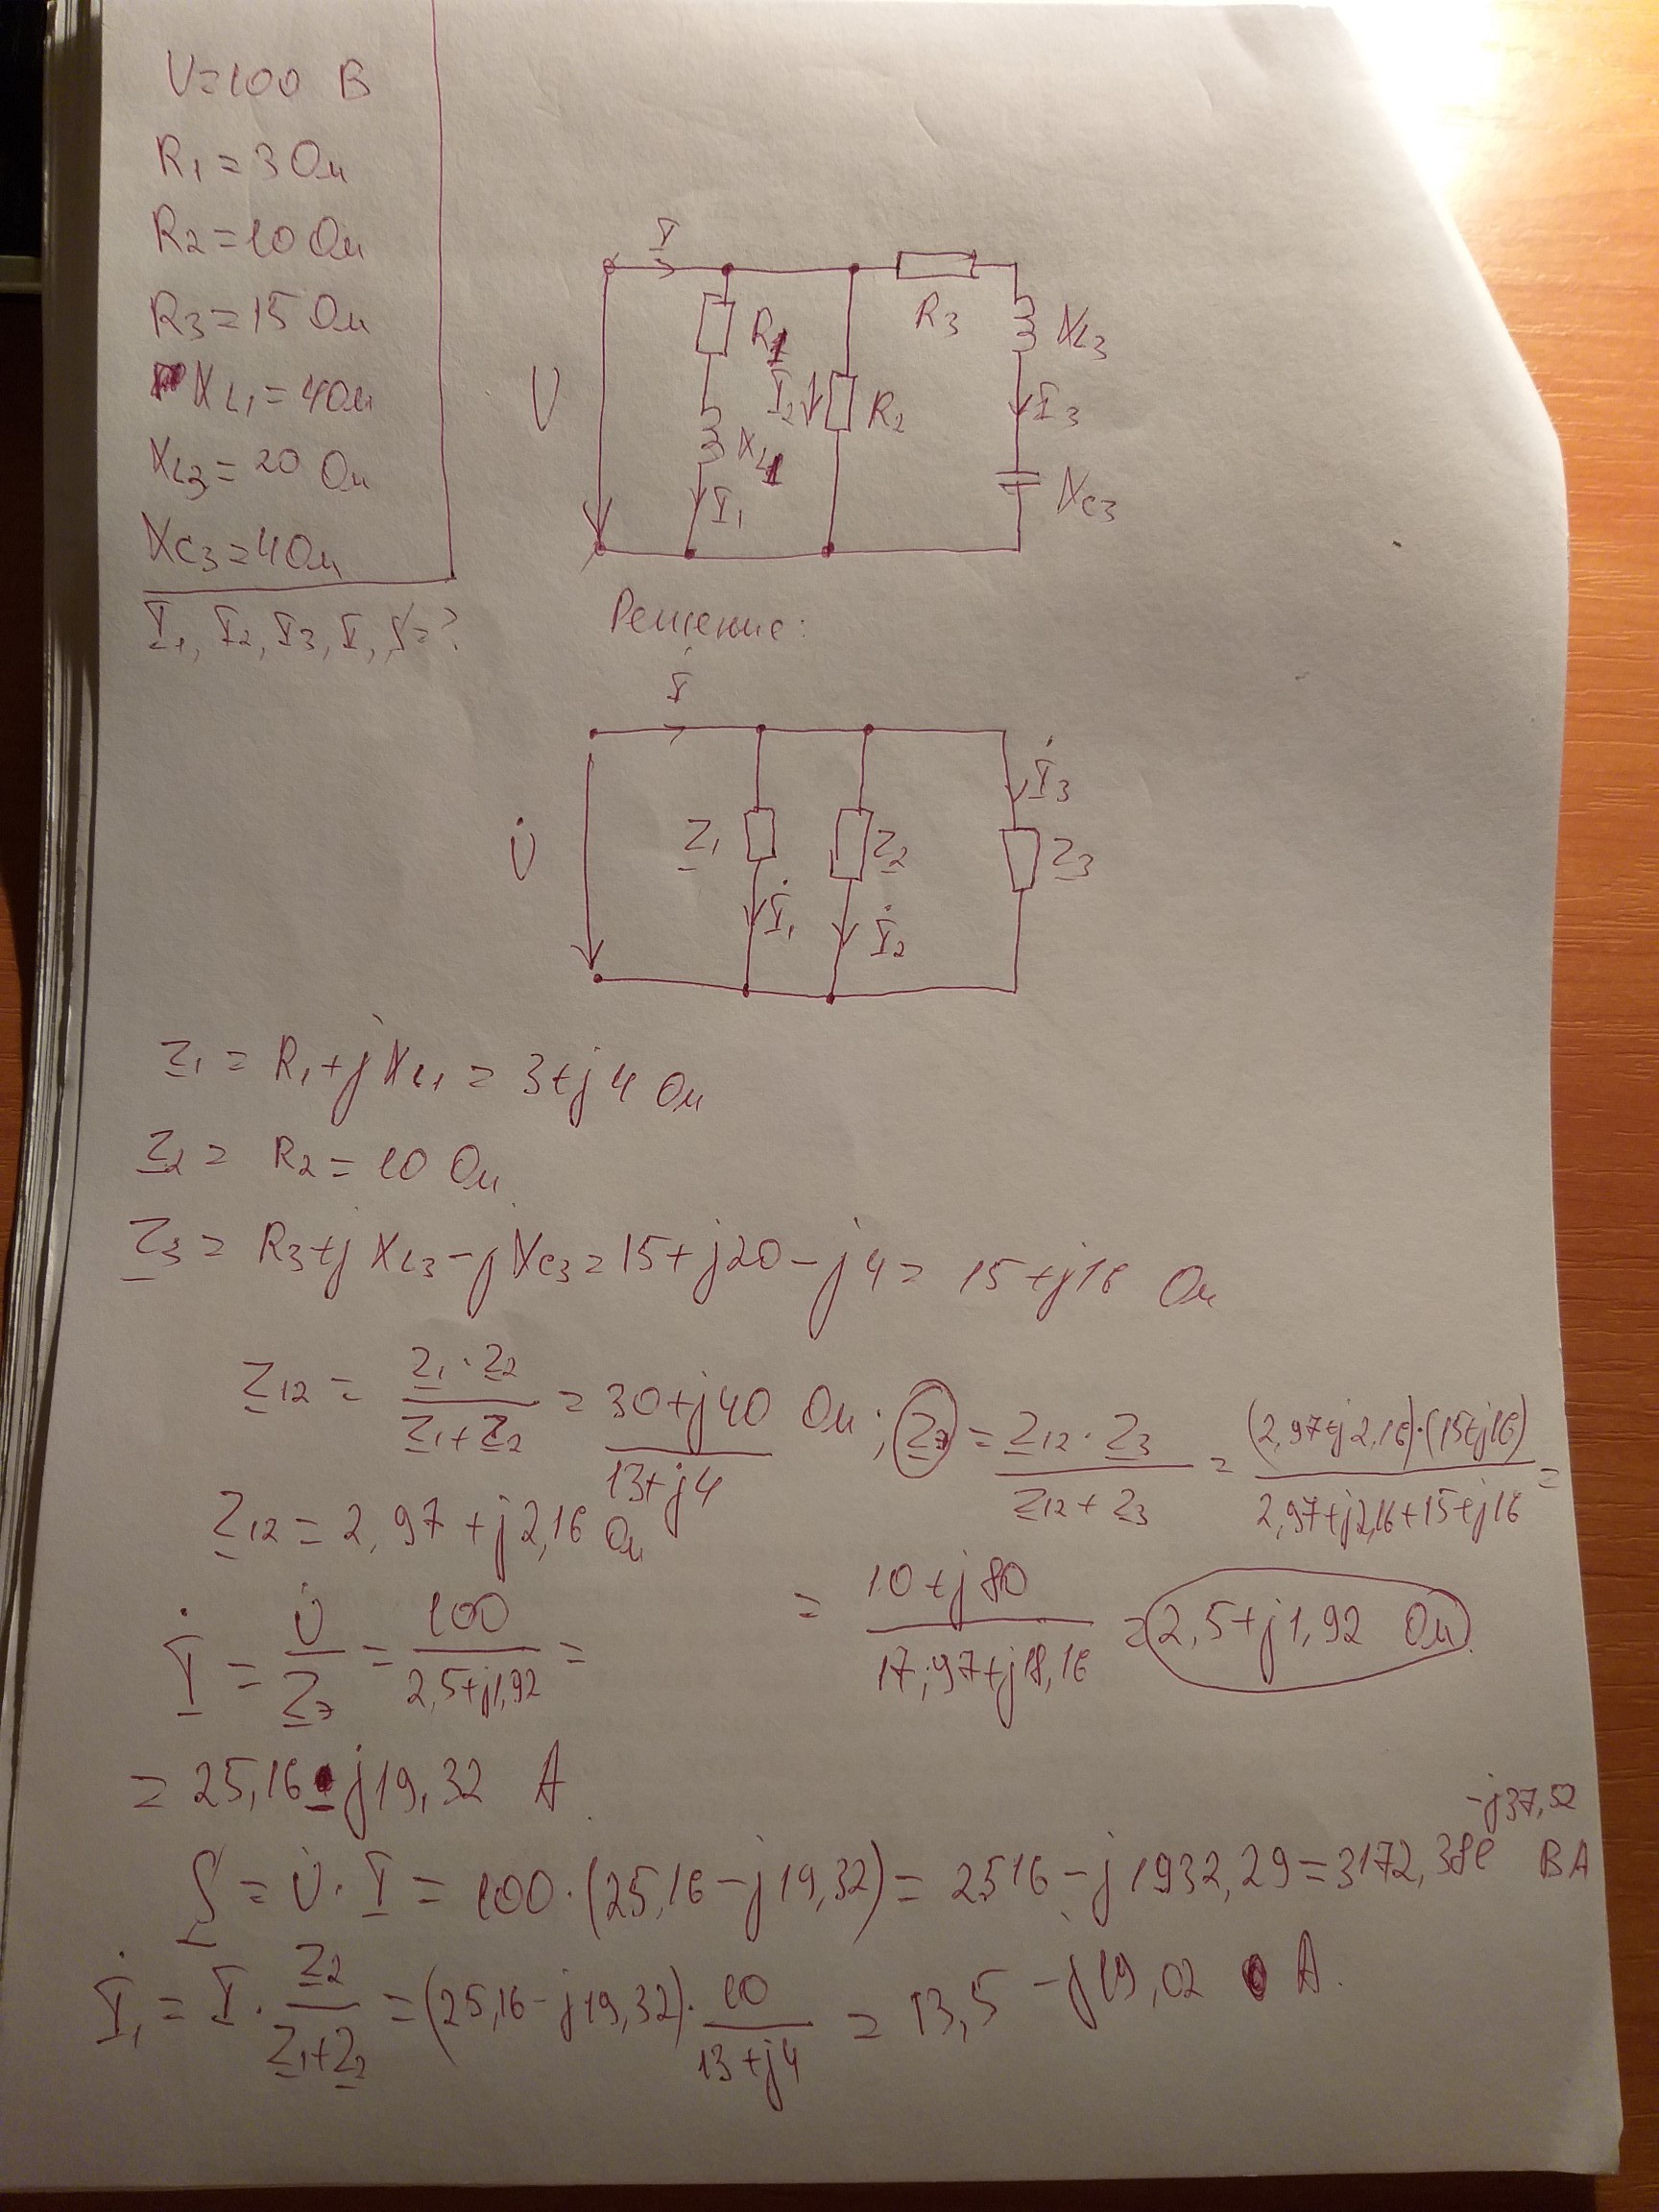 U=100 В
R1 = 3 Ом
R2=10 Ом
R3=15 Ом
XL1=4Ом
XL3=20 Ом
XC3=4Ом
I1, I2, I3, I, S=?
I
R1
XL1
I1
U
I2
R2
R3
XL3
I3
XC3
Решение:
İ
U̇
Z1
İ1
Z2
İ2
İ3
Z3
Z1 = R1+jXL1 = 3+j4 Ом
Z2 = R2=10 Ом
Z3 = R3+jXL3-jXC3=15+j20-j4= 15+j16 Ом
Z12 = Z1·Z2 / Z1+Z2 = 30+j40 / 13+j4 Ом; Zэ = Z12·Z3 / Z12+Z3 = (2,97+j2,16)·(15+j16) / 2,97+j2,16+15+j16 =
Z12 = 2,97+j2,16 Ом
= 10+j80 / 17,97+j18,16 = 2,5+j1,92 Ом
İ = U̇ / Zэ = 100 / 2,5+j1,92 =
= 25,16-j19,32 А
S = U̇·I = 100·(25,16-j19,32)= 2516-j1932,29=3172,38e^-j37,52 ВА
İ1 = I· Z2 / Z1+Z2 =(25,16-j19,32)· 10 / 13+j4 = 13,5 -j19,02 А.